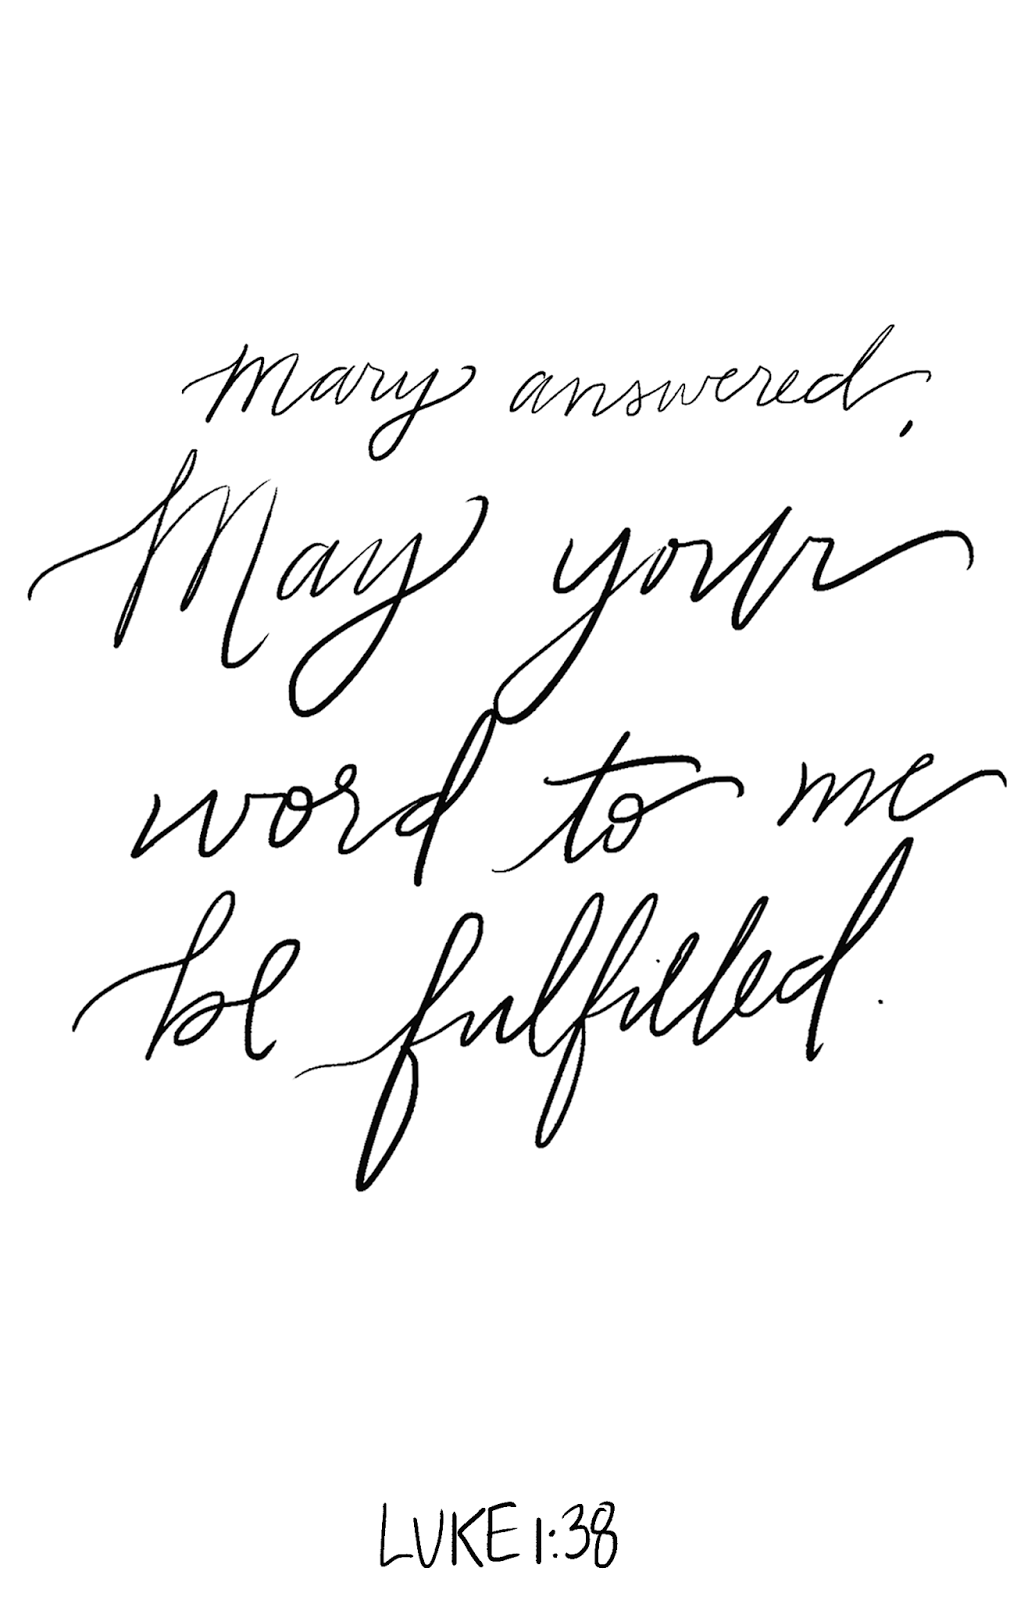 Mary answered,
May your
word to me
be fulfilled.
LUKE 1:38